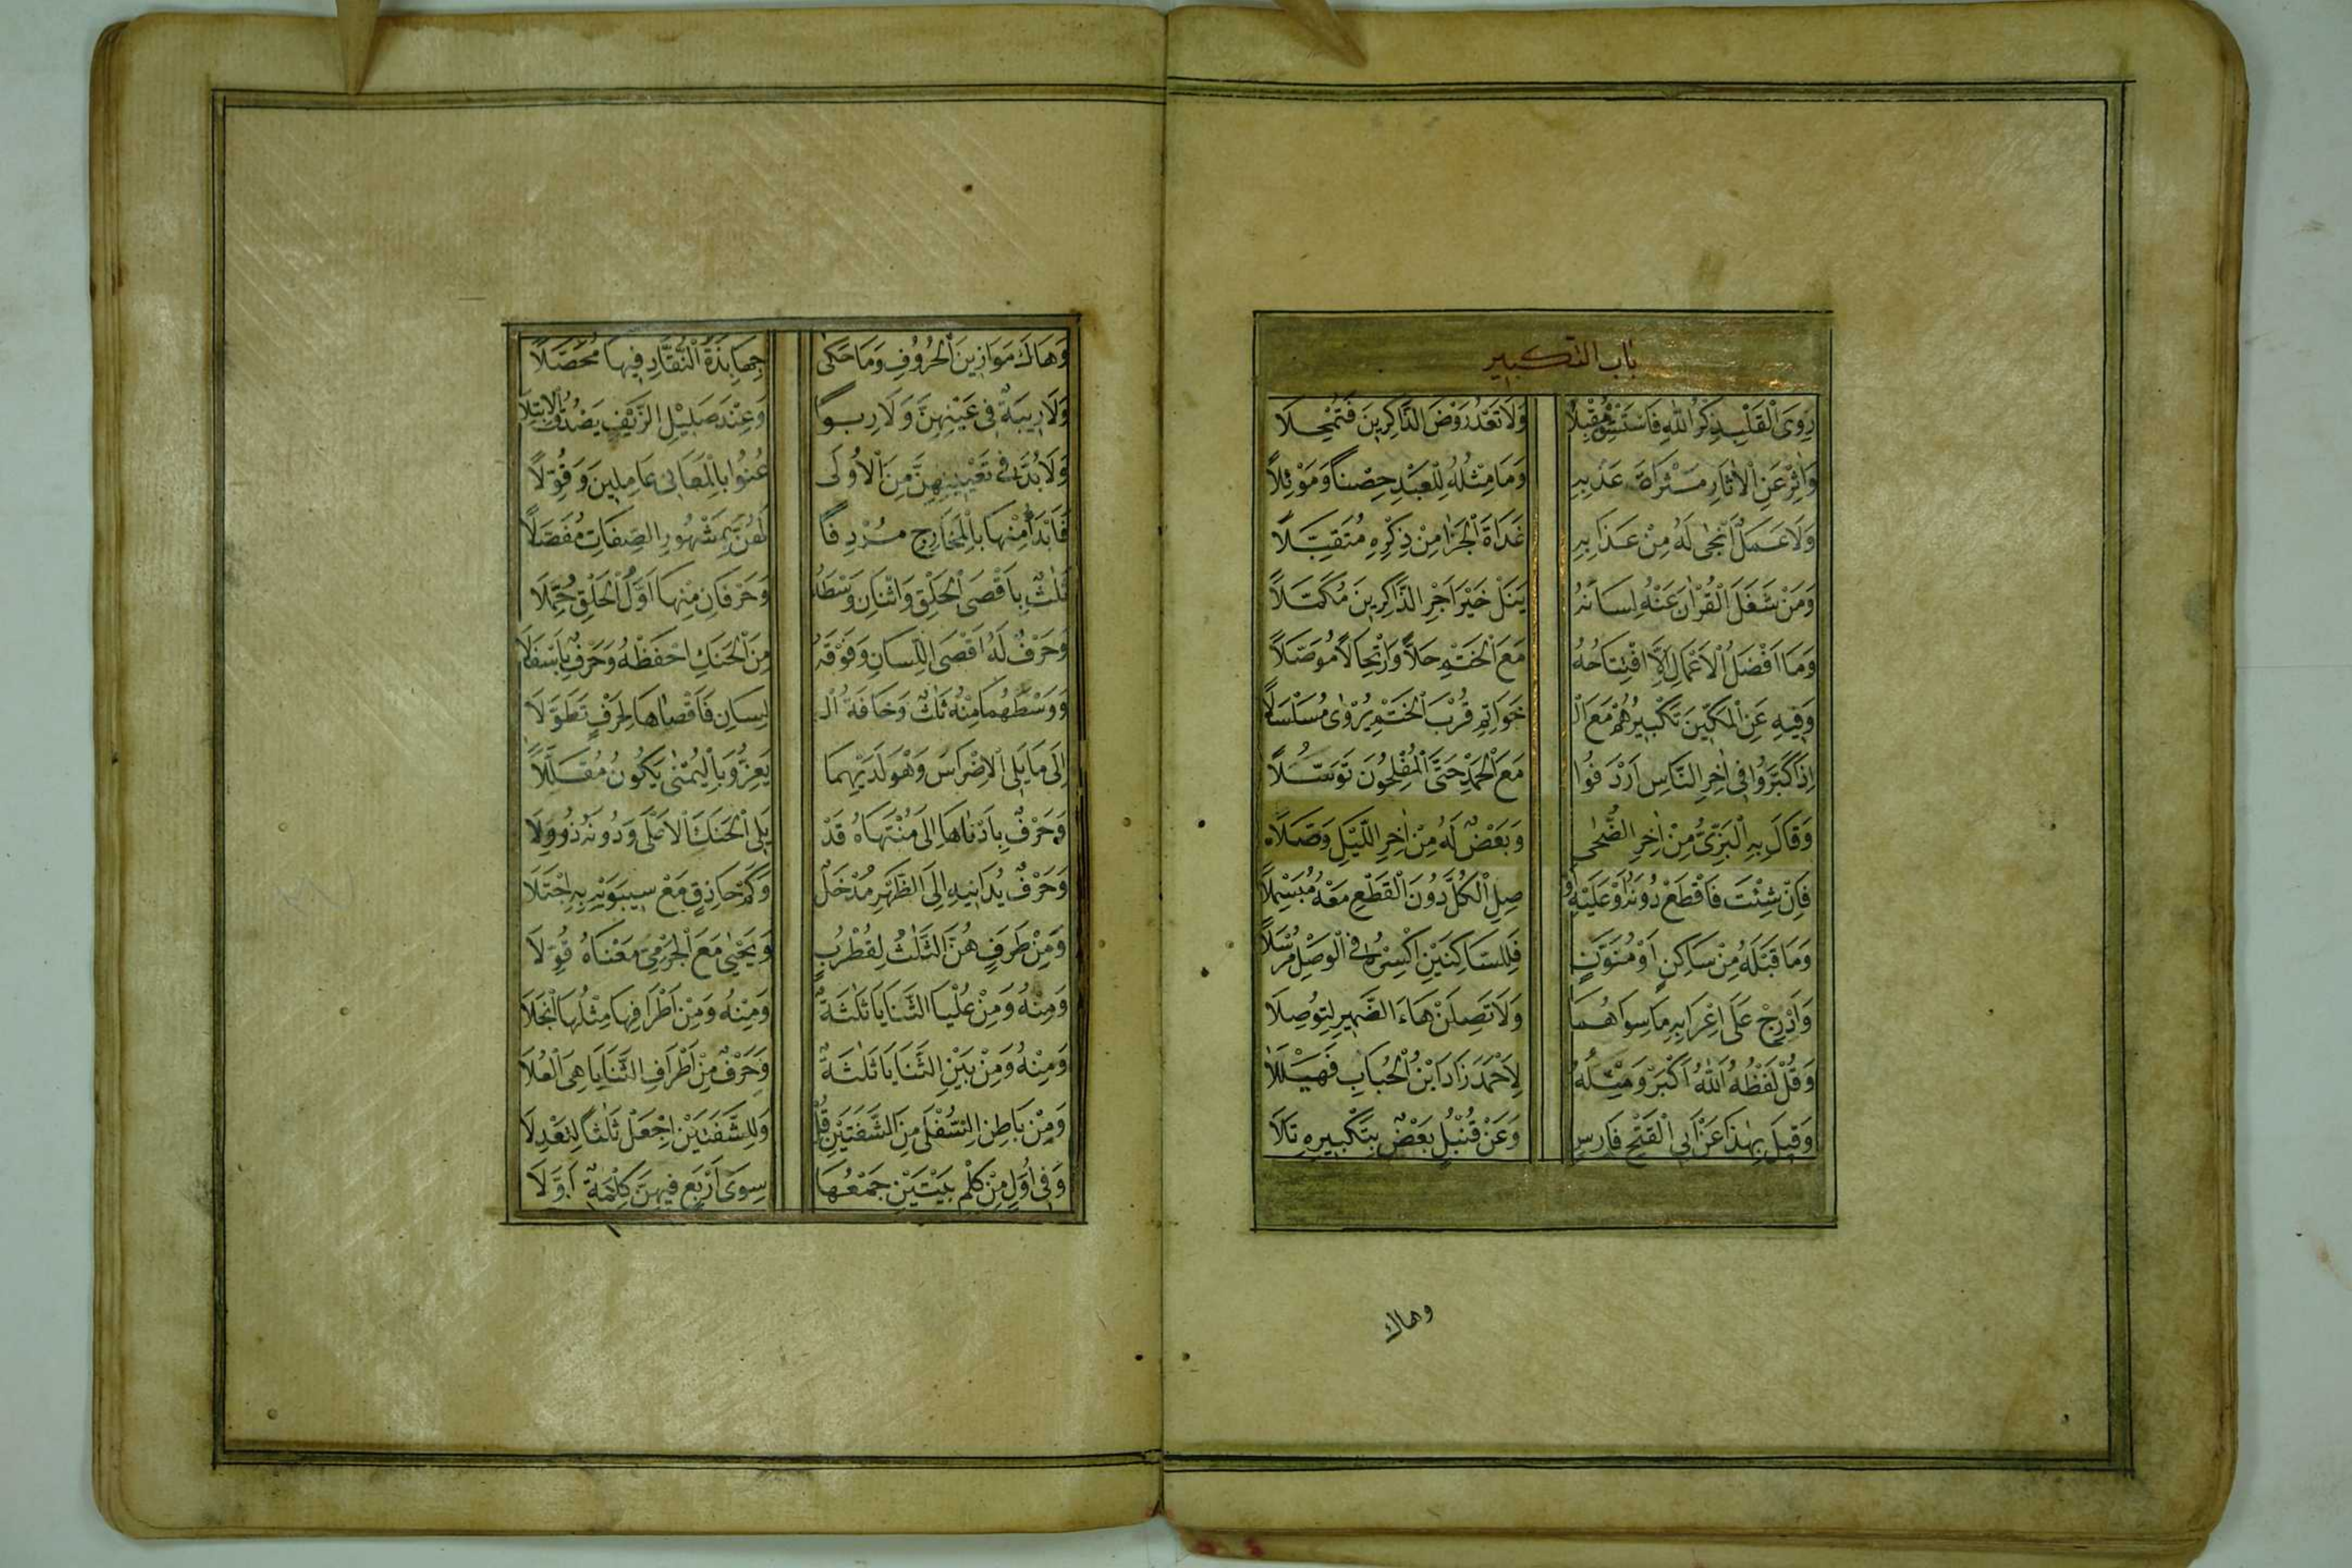 باب التكبير
رِوَى الْقَلْبِ ذِكْرُ اللهِ فَاسْتَسْقِ مُقْبِلًا وَلَا تَعْدُ رَوْضَ الذَّاكِرِينَ فَتُمْحِلَا
وَاٰثِرْ عَنِ الْاٰثَارِ مَثْرَاةَ عَذْبِهِ وَمَا مِثْلُهُ لِلْعَبْدِ حِصْنًا وَمَوْئِلًا
وَلَا عَمَلٌ اَنْجٰى لَهُ مِنْ عَذَابِهِ غَدَاةَ الْجَزَا مِنْ ذِكْرِهِ مُتَقَبَّلًا
وَمَنْ شَغَلَ الْقُرْاٰنُ عَنْهُ لِسَانَهُ يَنَلْ خَيْرَ اَجْرِ الذَّاكِرِينَ مُكَمَّلًا
وَمَا اَفْضَلُ الْاَعْمَالِ اِلَّا افْتِتَاحُهُ مَعَ الْخَتْمِ حِلًّا وَارْتِحَالًا مُوَصَّلًا
وَفِيهِ عَنِ الْمَكِّينَ تَكْبِيرُهُمْ مَعَ الْ خَوَاتِمِ قُرْبَ الْخَتْمِ يُرْوٰى مُسَلْسَلًا
اِذَا كَبَّرُوا فِي اٰخِرِ النَّاسِ اَرْدَفُوا مَعَ الْحَمْدِ حَتَّى الْمُفْلِحُونَ تَوَسُّلًا
وَقَالَ بِهِ الْبَزِّيُّ مِنْ اٰخِرِ الضُّحٰى وَبَعْضٌ لَهُ مِنْ اٰخِرِ اللَّيْلِ وَصَّلَا
فَاِنْ شِئْتَ فَاقْطَعْ دُونَهُ اَوْ عَلَيْهِ اَوْ صِلِ الْكُلَّ دُونَ الْقَطْعِ مَعْهُ مُبَسْمِلًا
وَمَا قَبْلَهُ مِنْ سَاكِنٍ اَوْ مُنَوَّنٍ فَلِلسَّاكِنَيْنِ اكْسِرْهُ فِي الْوَصْلِ مُرْسَلًا
وَاَدْرِجْ عَلَى اِعْرَابِهِ مَا سِوَاهُمَا وَلَا تَصِلَنْ هَاءَ الضَّمِيرِ لِتُوصَلَا
وَقُلْ لَفْظُهُ اَللّٰهُ اَكْبَرْ وَقَبْلَهُ لِاَحْمَدَ زَادَ ابْنُ الْحُبَابِ فَهَيْلَلَا
وَقِيلَ بِهٰذَا عَنْ اَبِي الْفَتْحِ فَارِسٍ وَعَنْ قُنْبُلٍ بَعْضٌ بِتَكْبِيرِهِ تَلَا
وهاك
وَهَاكَ مَوَازِينَ الْحُرُوفِ وَمَا حَكٰى جِهَابِذَةُ النُّقَّادِ فِيهَا مُحَصَّلًا
وَلَا رِيبَةٌ فِي عَيْنِهِنَّ وَلَا رِبًا وَعِنْدَ صَلِيلِ الزَّيْفِ يَصْدُقُ الْاِبْتِلَا
وَلَا بُدَّ فِي تَعْيِينِهِنَّ مِنَ الْاُولٰى عُنُوا بِالْمَعَانِي عَامِلِينَ وَقُوَّلًا
فَابْدَأْ مِنْهَا بِالْمَخَارِجِ مُرْدِفًا لَهُنَّ بِمَشْهُورِ الصِّفَاتِ مُفَصَّلًا
ثَلٰثٌ بِاَقْصَى الْحَلْقِ وَاثْنَانِ وَسْطَهُ وَحَرْفَانِ مِنْهَا اَوَّلَ الْحَلْقِ جُمِّلَا
وَحَرْفٌ لَهُ اَقْصَى اللِّسَانِ وَفَوْقَهُ مِنَ الْحَنَكِ احْفَظْهُ وَحَرْفٌ بِاَسْفَلَا
وَوَسْطُهُمَا مِنْهُ ثَلٰثٌ وَحَافَةُ الْ لِسَانِ فَاَقْصَاهَا لِحَرْفٍ تَطَوَّلَا
اِلَى مَا يَلِي الْاَضْرَاسَ وَهْوَ لَدَيْهِمَا يَعِزُّ وَبِالْيُمْنٰى يَكُونُ مُقَلَّلًا
وَحَرْفٌ بِاَدْنَاهَا اِلَى مُنْتَهَاهُ قَدْ يَلِي الْحَنَكَ الْاَعْلَى وَدُونَهُ ذُو وِلَا
وَحَرْفٌ يُدَانِيهِ اِلَى الظَّهْرِ مُدْخَلٌ وَكَمْ حَاذِقٍ مَعْ سِيبَوَيْهِ بِهِ اجْتَلَا
وَمِنْ طَرَفٍ هُنَّ الثَّلٰثُ لِقُطْرُبٍ وَيَحْيٰى مَعَ الْجَرْمِيِّ مَعْنَاهُ قُوِّلَا
وَمِنْهُ وَمِنْ عُلْيَا الثَّنَايَا ثَلٰثَةٌ وَمِنْهُ وَمِنْ اَطْرَافِهَا مِثْلُهَا انْجَلَا
وَمِنْهُ وَمِنْ بَيْنِ الثَّنَايَا ثَلٰثَةٌ وَحَرْفٌ مِنْ اَطْرَافِ الثَّنَايَا هِيَ الْعُلَا
وَمِنْ بَاطِنِ السُّفْلٰى مِنَ الشَّفَتَيْنِ قُلْ وَلِلشَّفَتَيْنِ اجْعَلْ ثَلٰثًا لِتَعْدِلَا
وَفِي اَوَّلٍ مِنْ كِلْمِ بَيْتَيْنِ جَمْعُهَا سِوٰى اَرْبَعٍ فِيهِنَّ كِلْمَةٌ اَوَّلَا